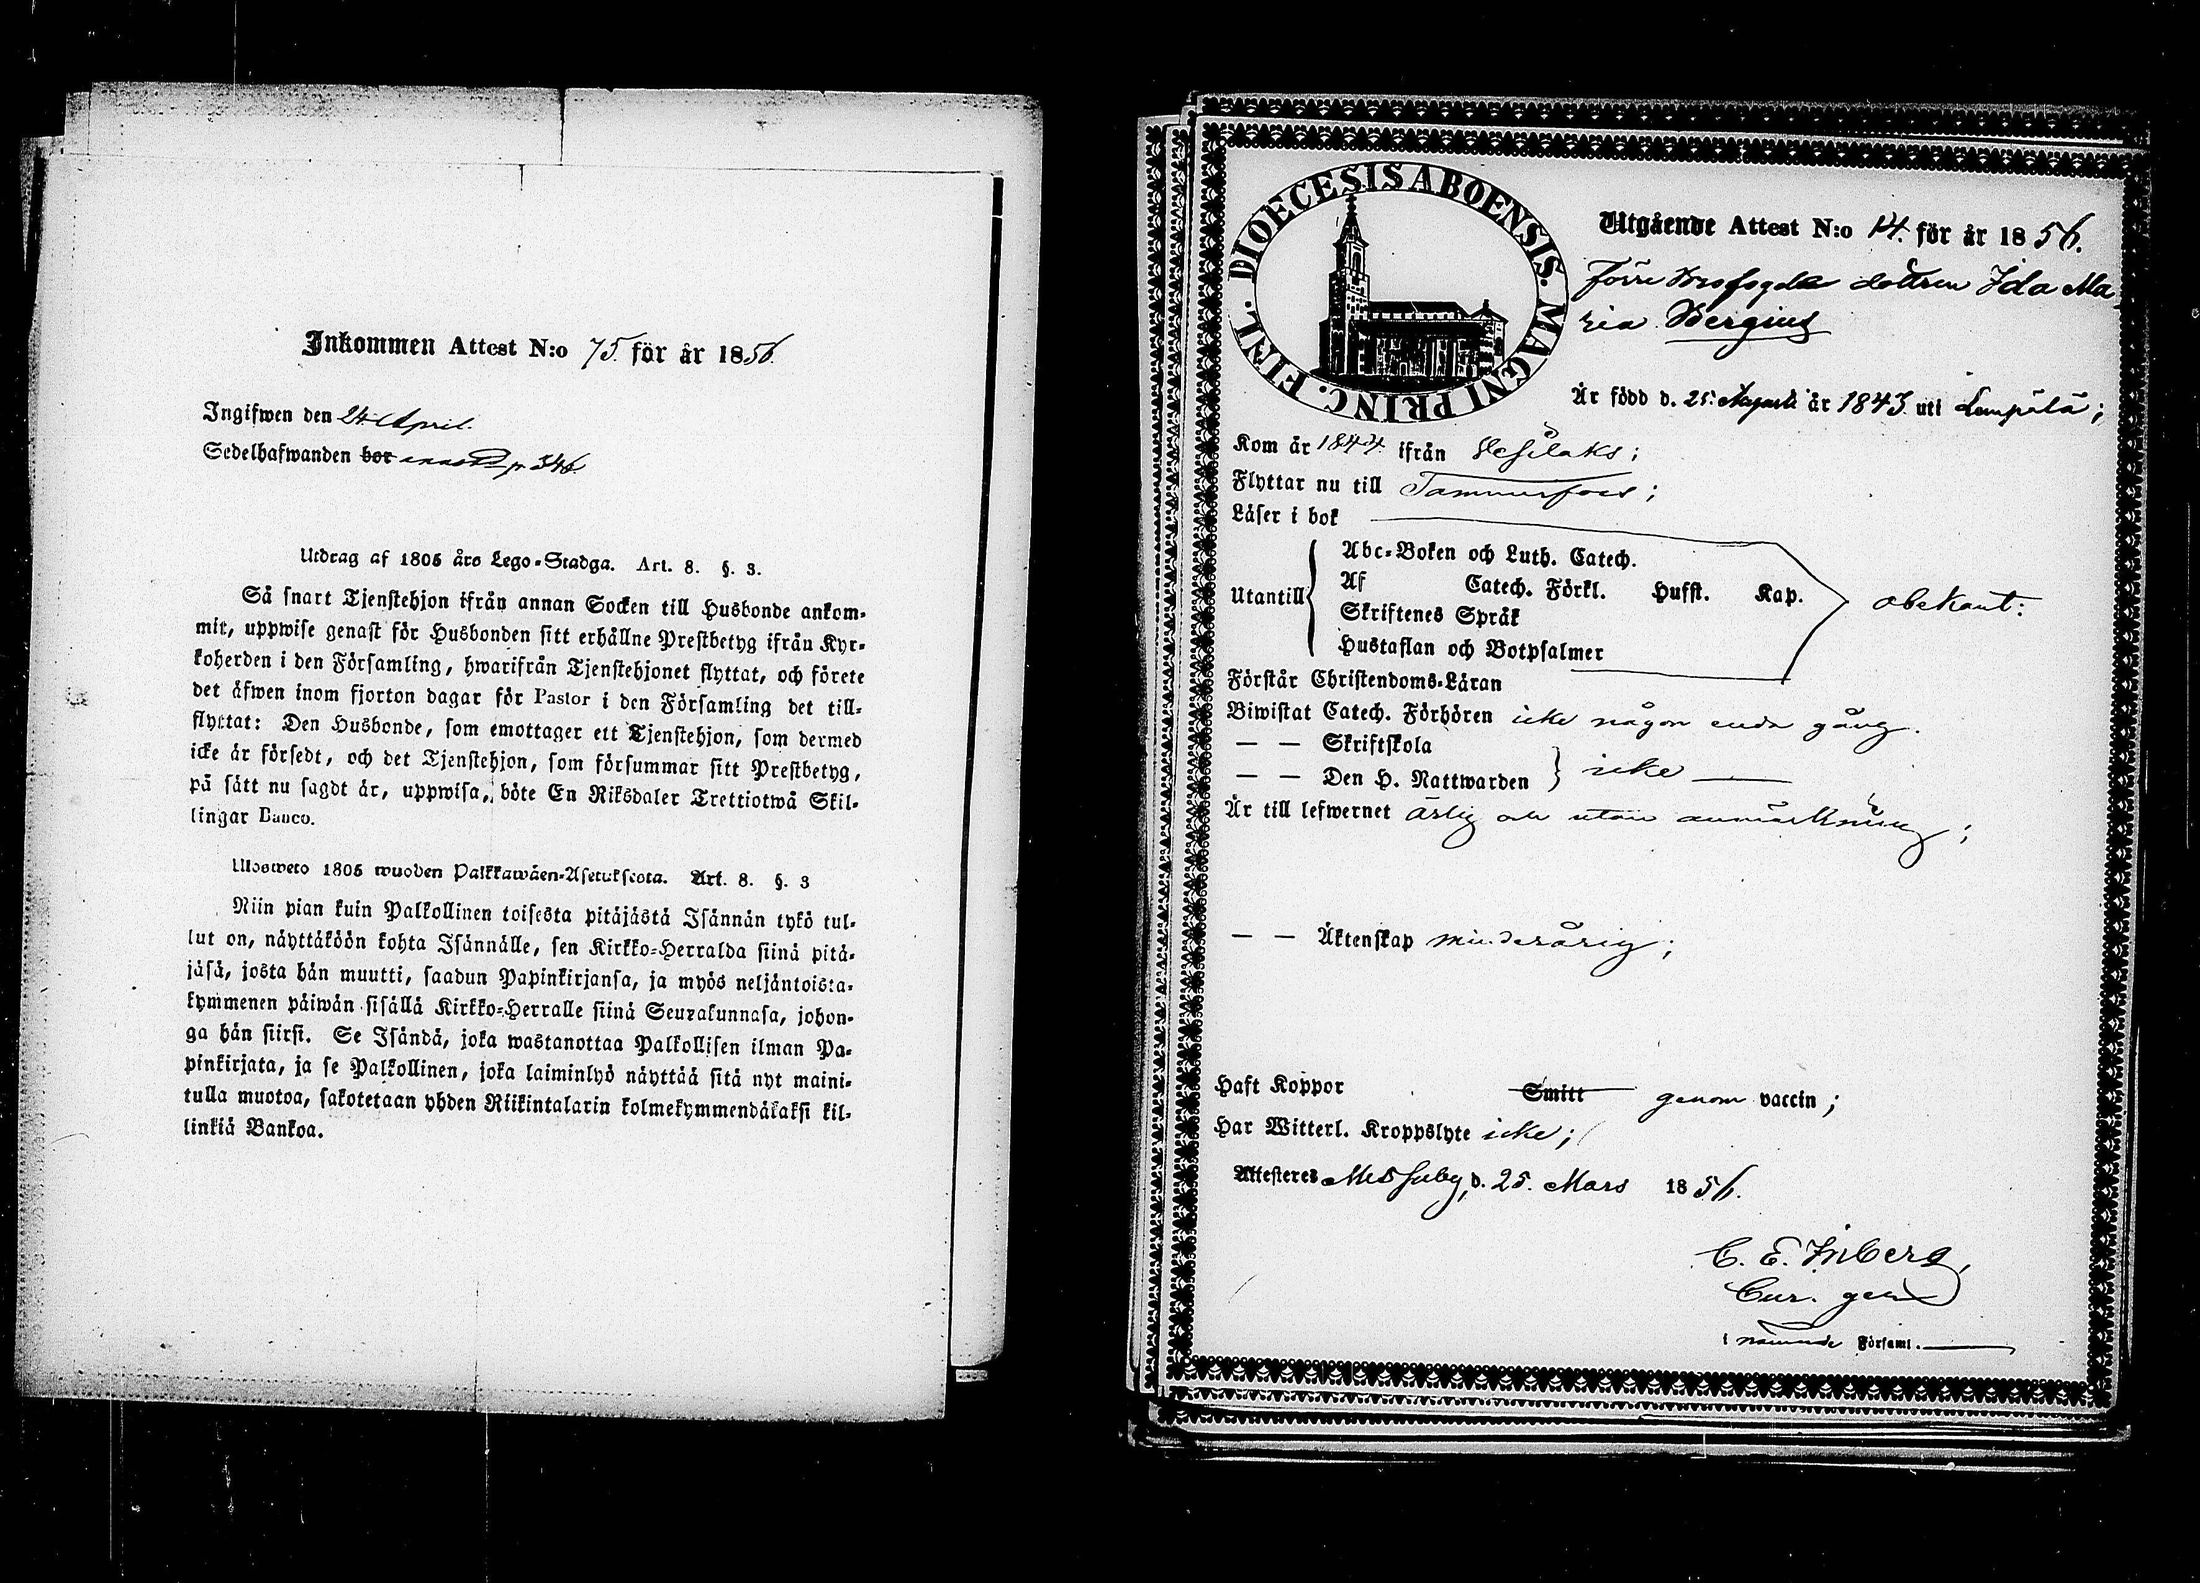 Inkommen Attest N:o 75. för år 1856.
Ingifwen den 24 April.
Sedelhafwanden bor p 346.
Utdrag af 1805 års Lego-Stadga. Art. 8. §. 3.
Så snart Tjenstehjon ifrån annan Socken till Husbonde ankom-
mit, uppwise genast för Husbonden sitt erhållne Prestbetyg ifrån Kyr-
koherden i den Församling, hwarifrån Tjenstehjonet flyttat, och förete
det äfwen inom fjorton dagar för Pastor i den Församling det till-
flyttat: Den Husbonde, som emottager ett Tjenstehjon, som dermed
icke är försedt, och det Tjenstehjon, som försummar sitt Prestbetyg,
på sätt nu sagdt är, uppwisa, böte En Riksdaler Trettiotwå Skil-
lingar Banco.
Ulosweto 1805 wuoden Palkkawäen-Asetuksesta. Art. 8. §. 3
Niin pian kuin Palkollinen toisesta pitäjästä Isännän tykö tul-
lut on, näyttäköön kohta Isännälle, sen Kirkko-Herralda siinä pitä-
jäsä, josta hän muutti, saadun Papinkirjansa, ja myös neljäntoista-
kymmenen päiwän sisällä Kirkko-Herralle siinä Seurakunnasa, johon-
ga hän siirsi. Se Isändä, joka wastanottaa Palkollisen ilman Pa-
pinkirjata, ja se Palkollinen, joka laiminlyö näyttää sitä nyt maini-
tulla muotoa, sakotetaan yhden Riikintalarin kolmekymmendäkaksi kil-
linkiä Bankoa.
DIOECESIS ABOENSIS. MAGNI PRINC. FINL.
Utgående Attest N:o 14. för år 1856.
Förre dottren Ida Ma
ria Bergius
Är född d. 25. Augusti år 1843 uti Lempälä;
Kom år 1844 ifrån Vesilaks;
Flyttar nu till Tammerfors;
Läser i bok
Abc-Boken och Luth. Catech.
Utantill Af Catech. Förkl. Husst. Kap. obekant:
Skriftenes Språk
Hustaflan och Botpsalmer
Förstår Christendoms-Läran
Biwistat Catech. Förhören icke någon enda gång.
— — Skriftskola
— — Den H. Nattwarden } icke
Är till lefwernet ärlig och utan anmärkning;
— — Äktenskap minderårig;
Haft Koppor Smitt genom vaccin;
Har Witterl. Kroppslyte icke;
Attesteras Messuby, d. 25. Mars 1856.
C. E. Inberg,
Cur. ger
i nämnde Församl.